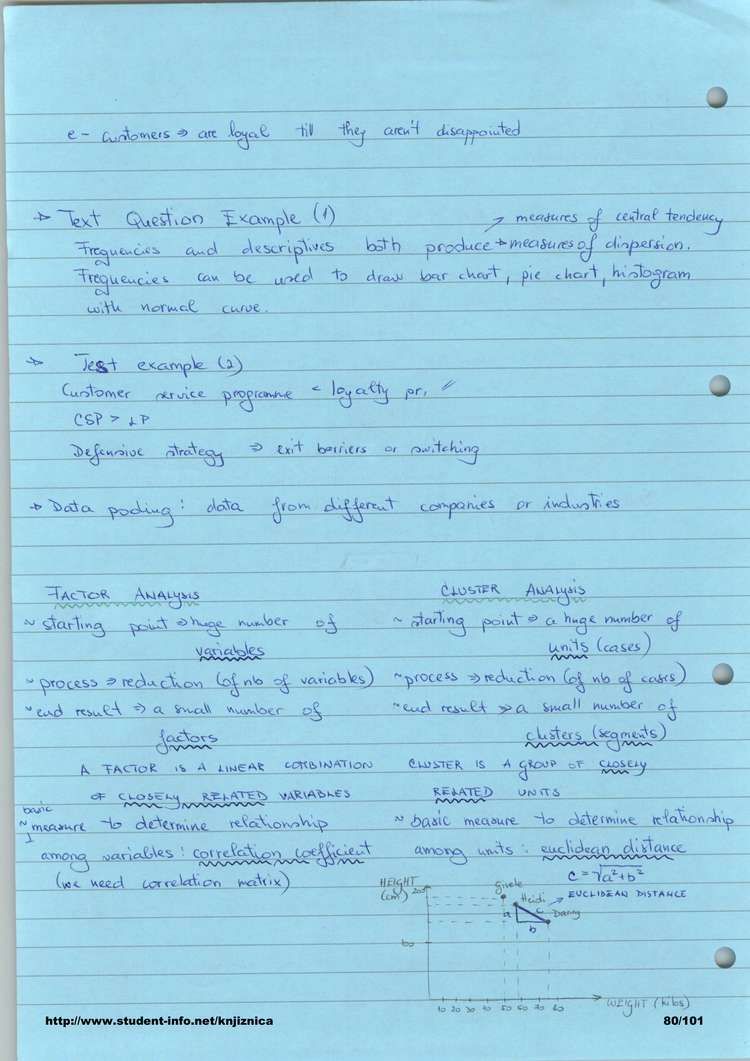 e - customers ⇒ are loyal till they aren't disappointed
→ Text Question Example (1)
↗ measures of central tendency
Frequencies and descriptives both produce → measures of dispersion.
Frequencies can be used to draw bar chart, pie chart, histogram
with normal curve.
→ Test example (2)
Customer service programme < loyalty pr. //
CSP > LP
Defensive strategy ⇒ exit barriers or switching
→ Data pooling: data from different companies or industries
FACTOR ANALYSIS
~ starting point ⇒ huge number of
variables
~ process ⇒ reduction (of nb of variables)
~ end result ⇒ a small number of
factors
A FACTOR IS A LINEAR COMBINATION
OF CLOSELY RELATED VARIABLES
basic
~ measure to determine relationship
among variables: correlation coefficient
(we need correlation matrix)
CLUSTER ANALYSIS
~ starting point ⇒ a huge number of
units (cases)
~ process ⇒ reduction (of nb of cases)
~ end result ⇒ a small number of
clusters (segments)
CLUSTER IS A GROUP OF CLOSELY
RELATED UNITS
~ basic measure to determine relationship
among units: euclidean distance
c = √a²+b²
→ EUCLIDEAN DISTANCE
HEIGHT
(cm) 200
Gisele
Heidi
a c Danny
b
100
10 20 30 40 50 60 70 80
WEIGHT (kilos)
http://www.student-info.net/knjiznica
80/101